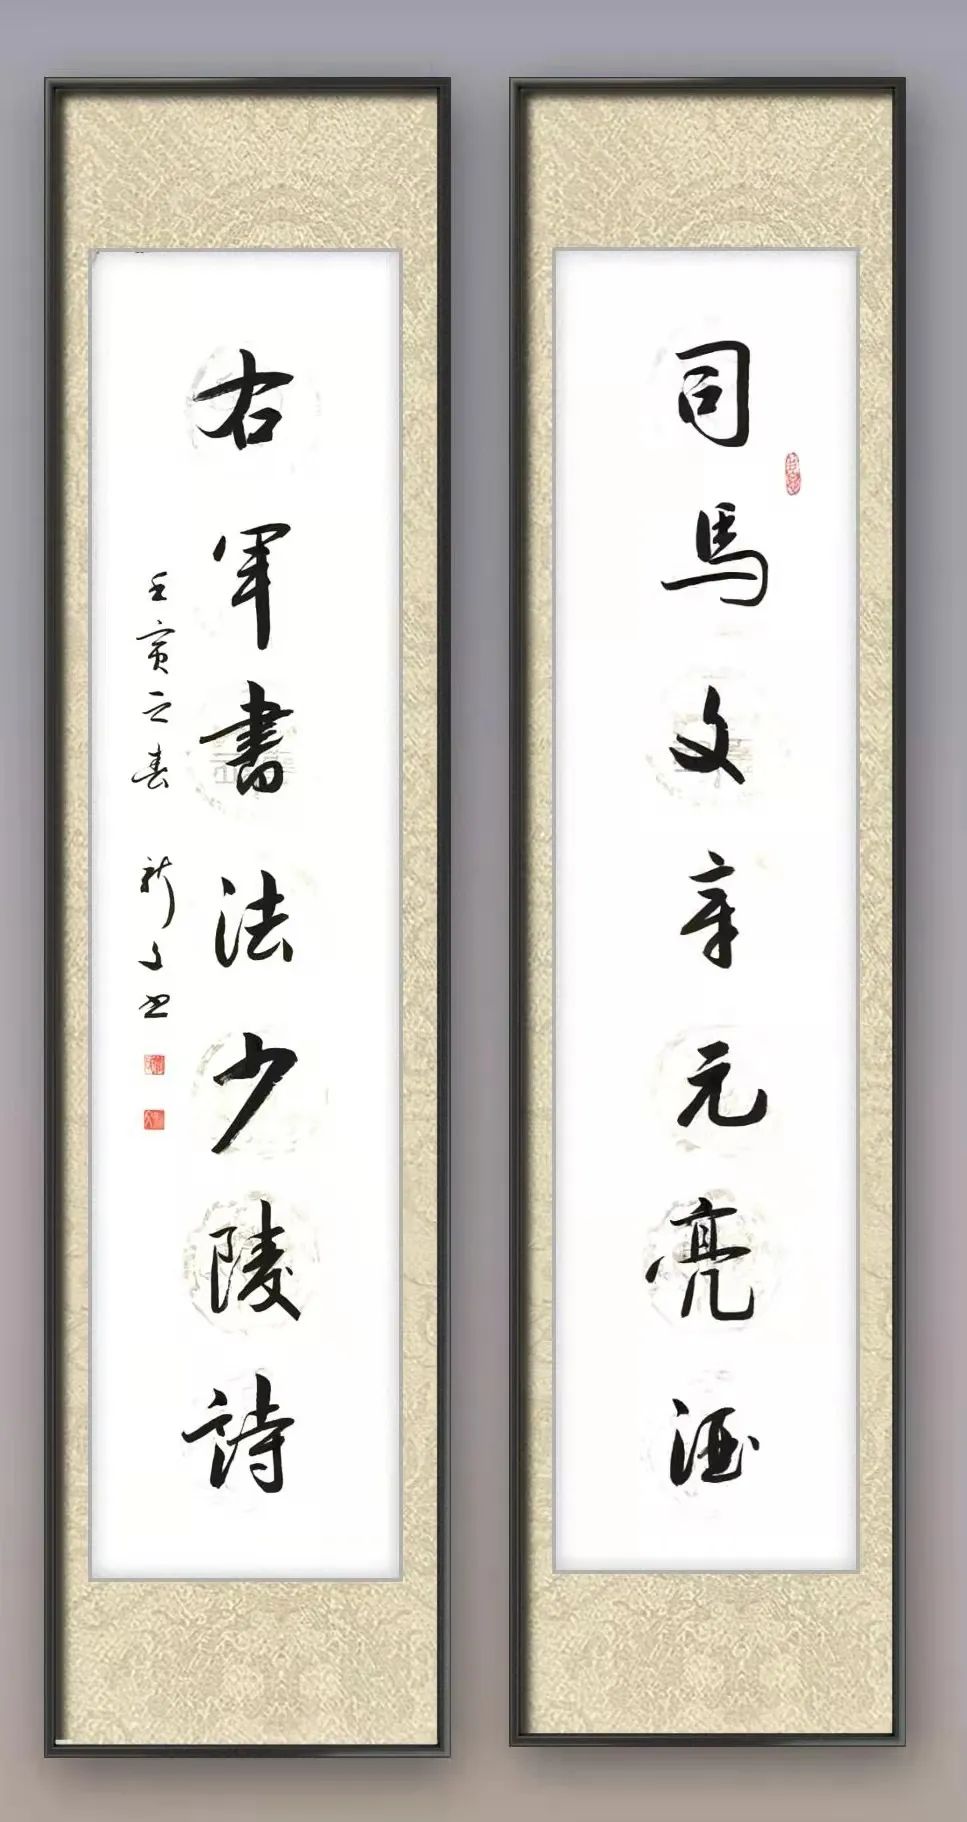 司馬文章元亮酒
右軍書法少陵詩
壬寅之春 新文書